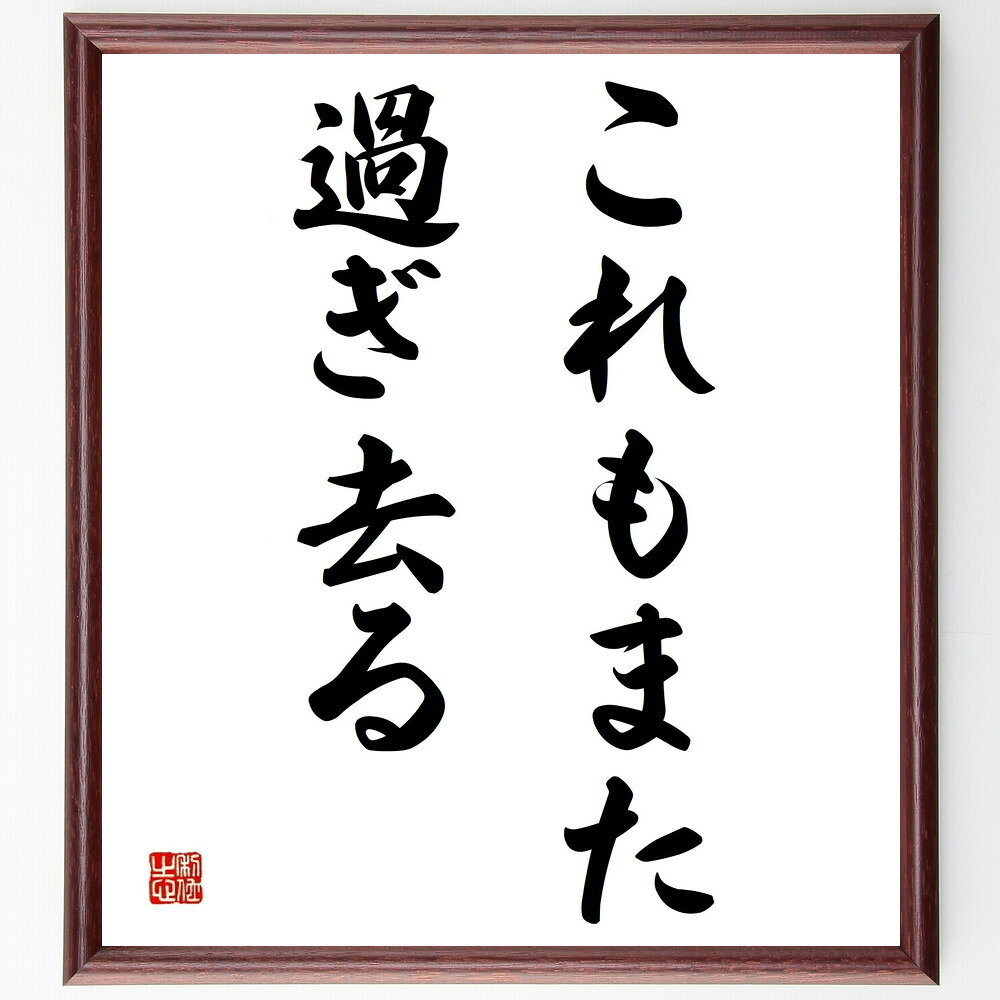 これもまた
過ぎ去る